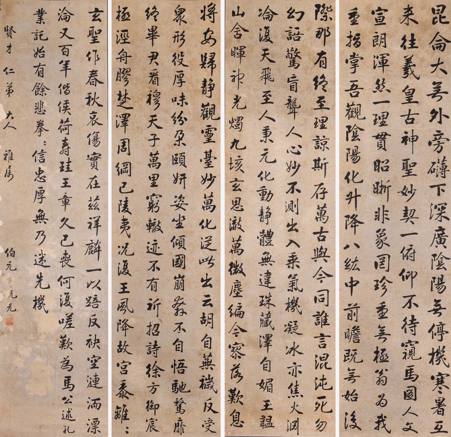 昆侖大無外旁礴下深廣陰陽無停機寒暑互
來往羲皇古神聖妙契一俯仰不待窺馬圖人文
宣朗渾然一理貫昭晰非象罔珍重無極翁為我
重指掌吾觀陰陽化升降八紘中前瞻既無始後
際那有終至理諒斯存萬古與今同誰言混沌死
幻語驚盲聾人心妙不測出入乘氣機凝冰亦焦火淵
淪復天飛至人秉元化動靜體無違珠藏澤自媚玉韞
山含暉神光燭九垓玄思徹萬微塵編今寥落歎息
將安歸靜觀靈臺妙萬化從此出云胡自蕪穢反受
眾形役厚味紛朵頤妍姿坐傾國崩奔不自悟馳騖靡
終畢君看穆天子萬里窮轍迹不有祈招詩徐方御宸
極涇舟膠楚澤周綱已陵夷況復王風降故宮黍離〻
玄聖作春秋哀傷實在茲祥麟一以踣反袂空漣洏漂
淪又百年僭侯荷爵珪王章久已喪何復嗟歎為馬公述孔
業託始有餘悲拳〻信忠厚無乃迷先機
賢才仁弟大人雅屬
伯元